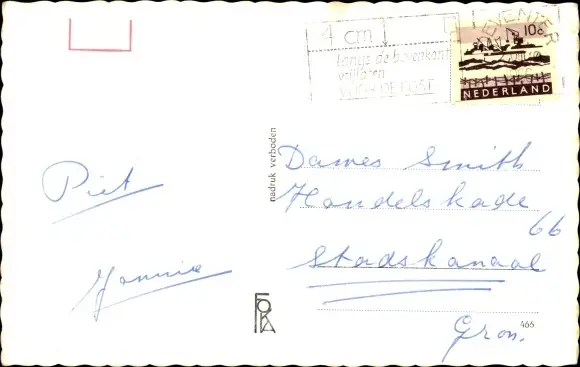 4 cm
langs de bovenkant
vrijlaten
VOOR DE POST
DEVENTER
10c
NEDERLAND
nadruk verboden
Piet
Jannie
Dames Smith
Handelskade
66
Stadskanaal
Gron.
FOKA
466